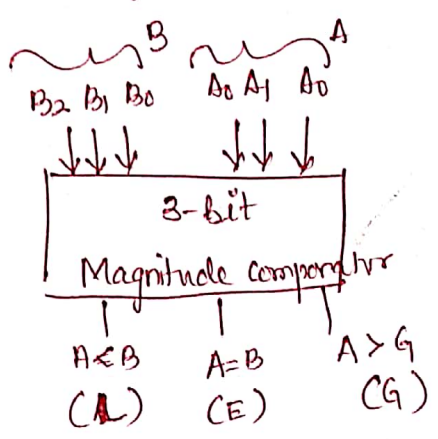 B A
B2 B1 B0 A0 A1 A0
3-bit
Magnitude comparator
A<B A=B A>G
(L) (E) (G)